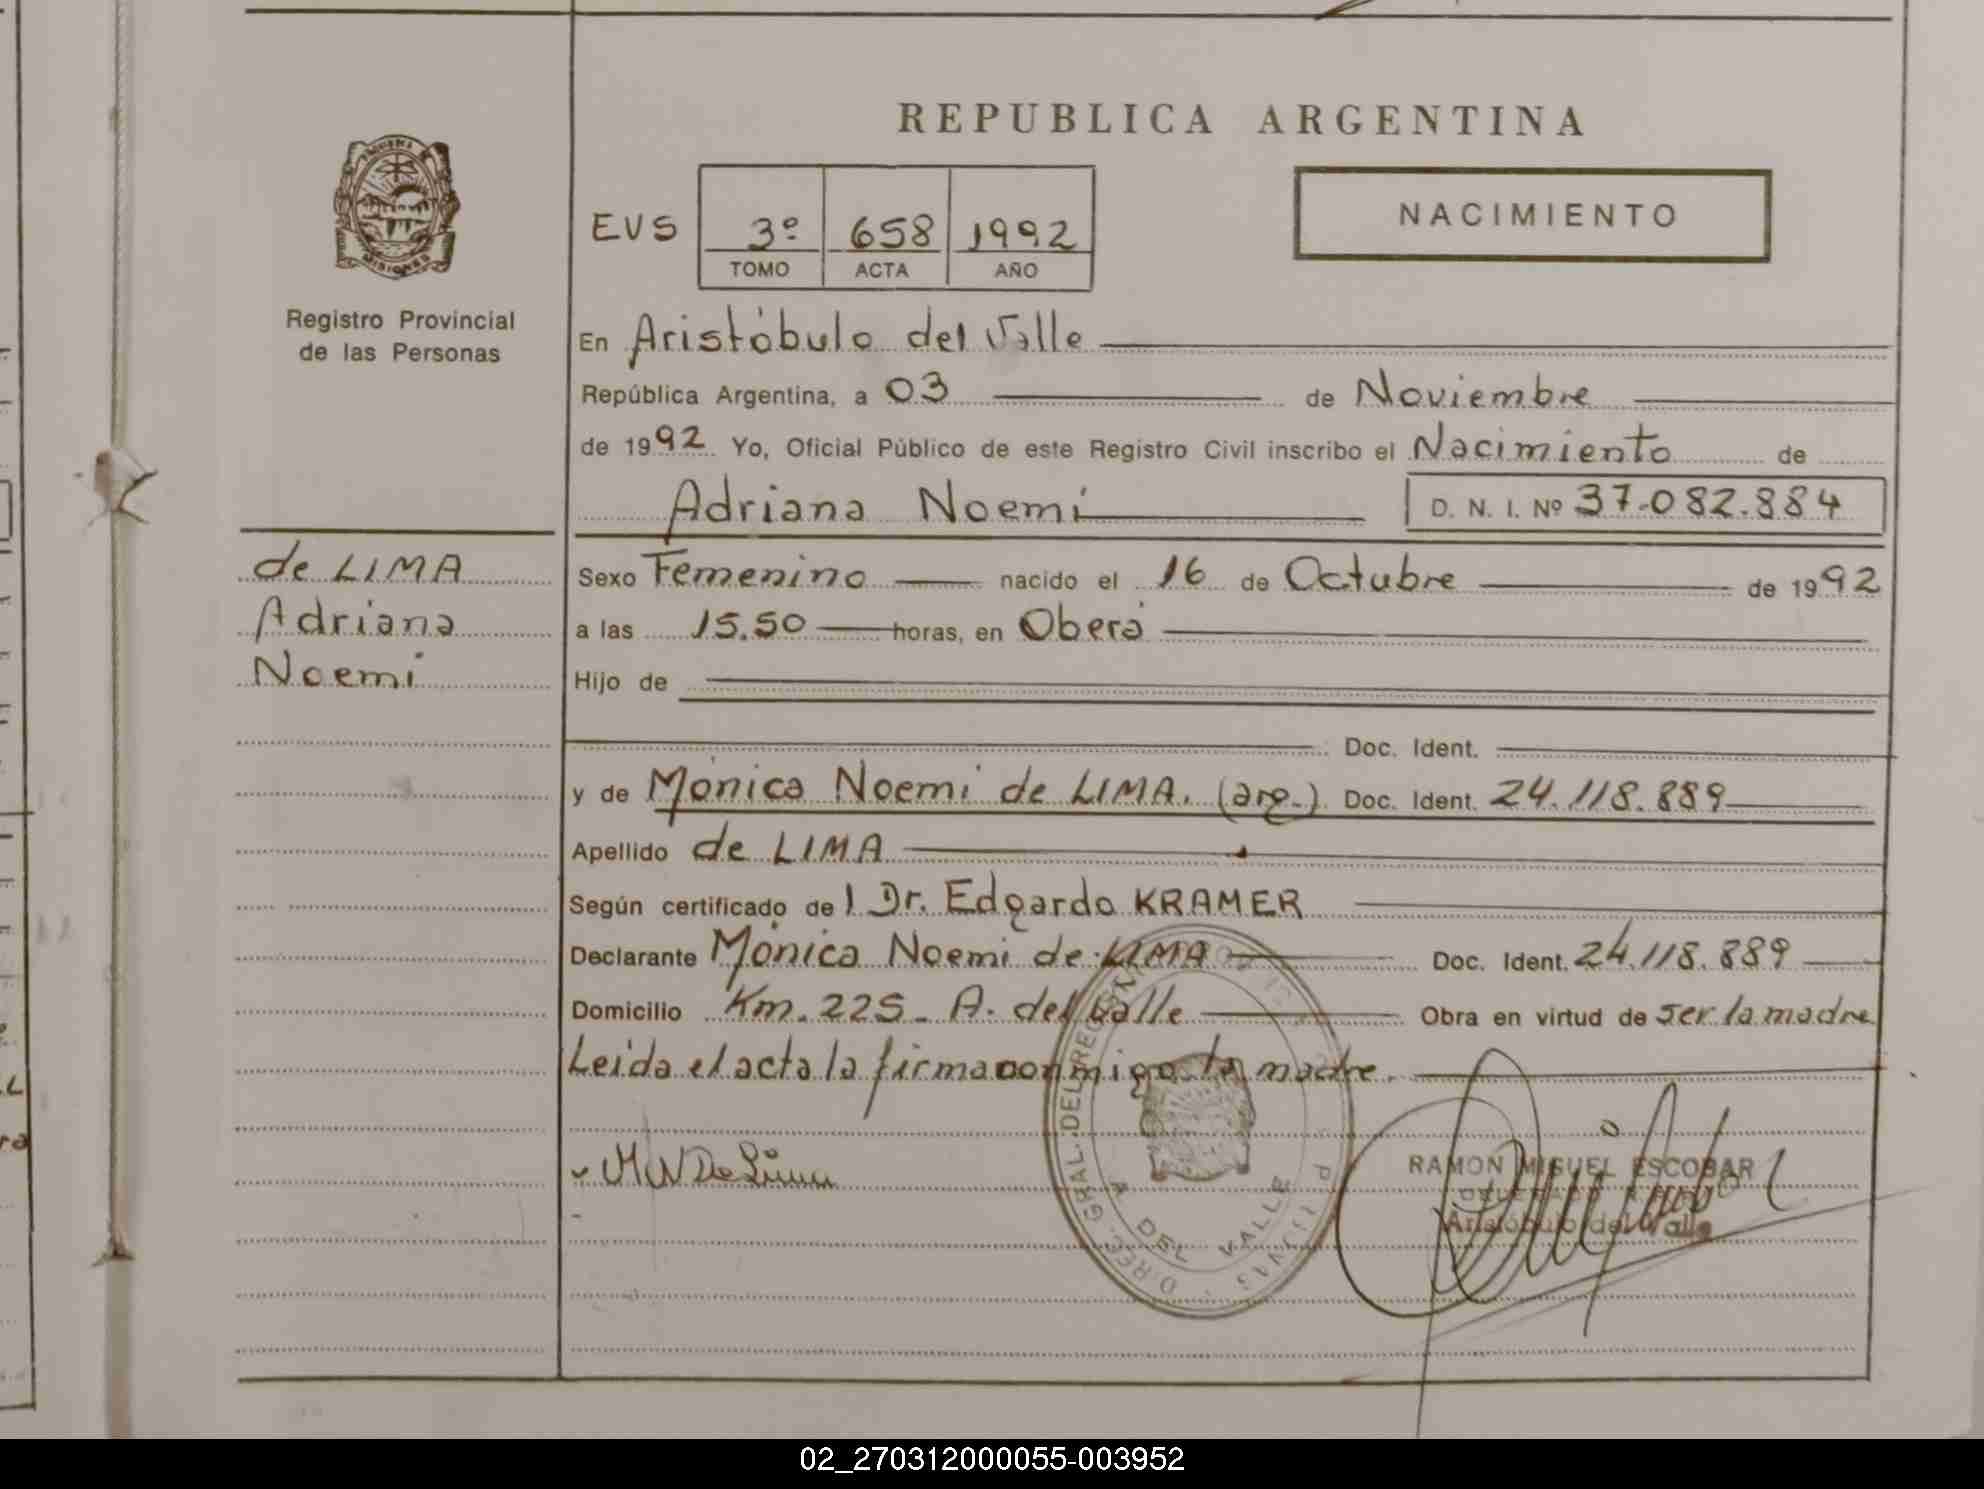 REPUBLICA ARGENTINA
MISIONES
Registro Provincial
de las Personas
EVS
3º 658 1992
TOMO ACTA AÑO
NACIMIENTO
En Aristóbulo del Valle
República Argentina, a 03 de Noviembre
de 1992 Yo, Oficial Público de este Registro Civil inscribo el Nacimiento de
Adriana Noemí D. N. I. Nº 37.082.884
de LIMA
Adriana
Noemí
Sexo Femenino nacido el 16 de Octubre de 1992
a las 15.50 horas, en Oberá
Hijo de
Doc. Ident.
y de Mónica Noemí de LIMA. (arg.) Doc. Ident. 24.118.889
Apellido de LIMA
Según certificado del Dr. Edgardo KRAMER
Declarante Mónica Noemí de LIMA Doc. Ident. 24.118.889
Domicilio Km. 225. A. del Valle Obra en virtud de ser la madre
Leída el acta la firma conmigo la madre.
M N De Lima
A DEL VALLE
RAMON MIGUEL ESCOBAR
Aristóbulo del Valle
02_270312000055-003952